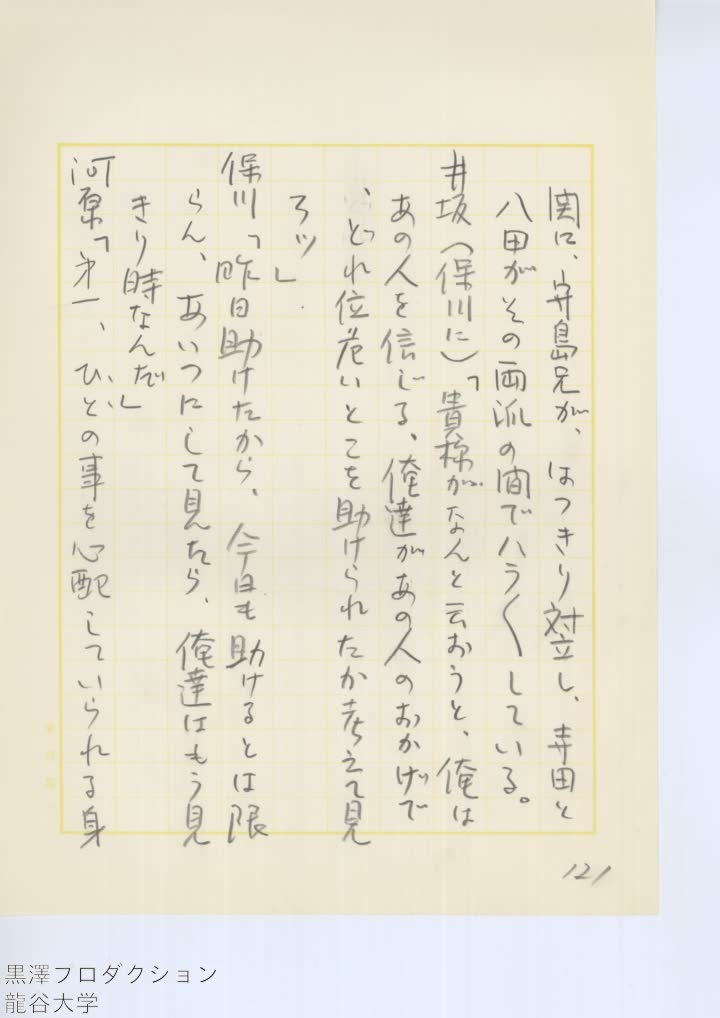 関に、守島兄が、はつきり対立し、寺田と
八田がその両派の間でハラ〱している。
井坂（保川に）「貴様がなんと云おうと、俺は
あの人を信じる、俺達があの人のおかげで
、どれ位危いとこを助けられたか考えて見
ろッ」
保川「昨日助けたから、今日も助けるとは限
らん、あいつにして見たら、俺達はもう見
きり時なんだ」
河原「第一、ひとの事を心配していられる身
121
黒澤プロダクション
龍谷大学